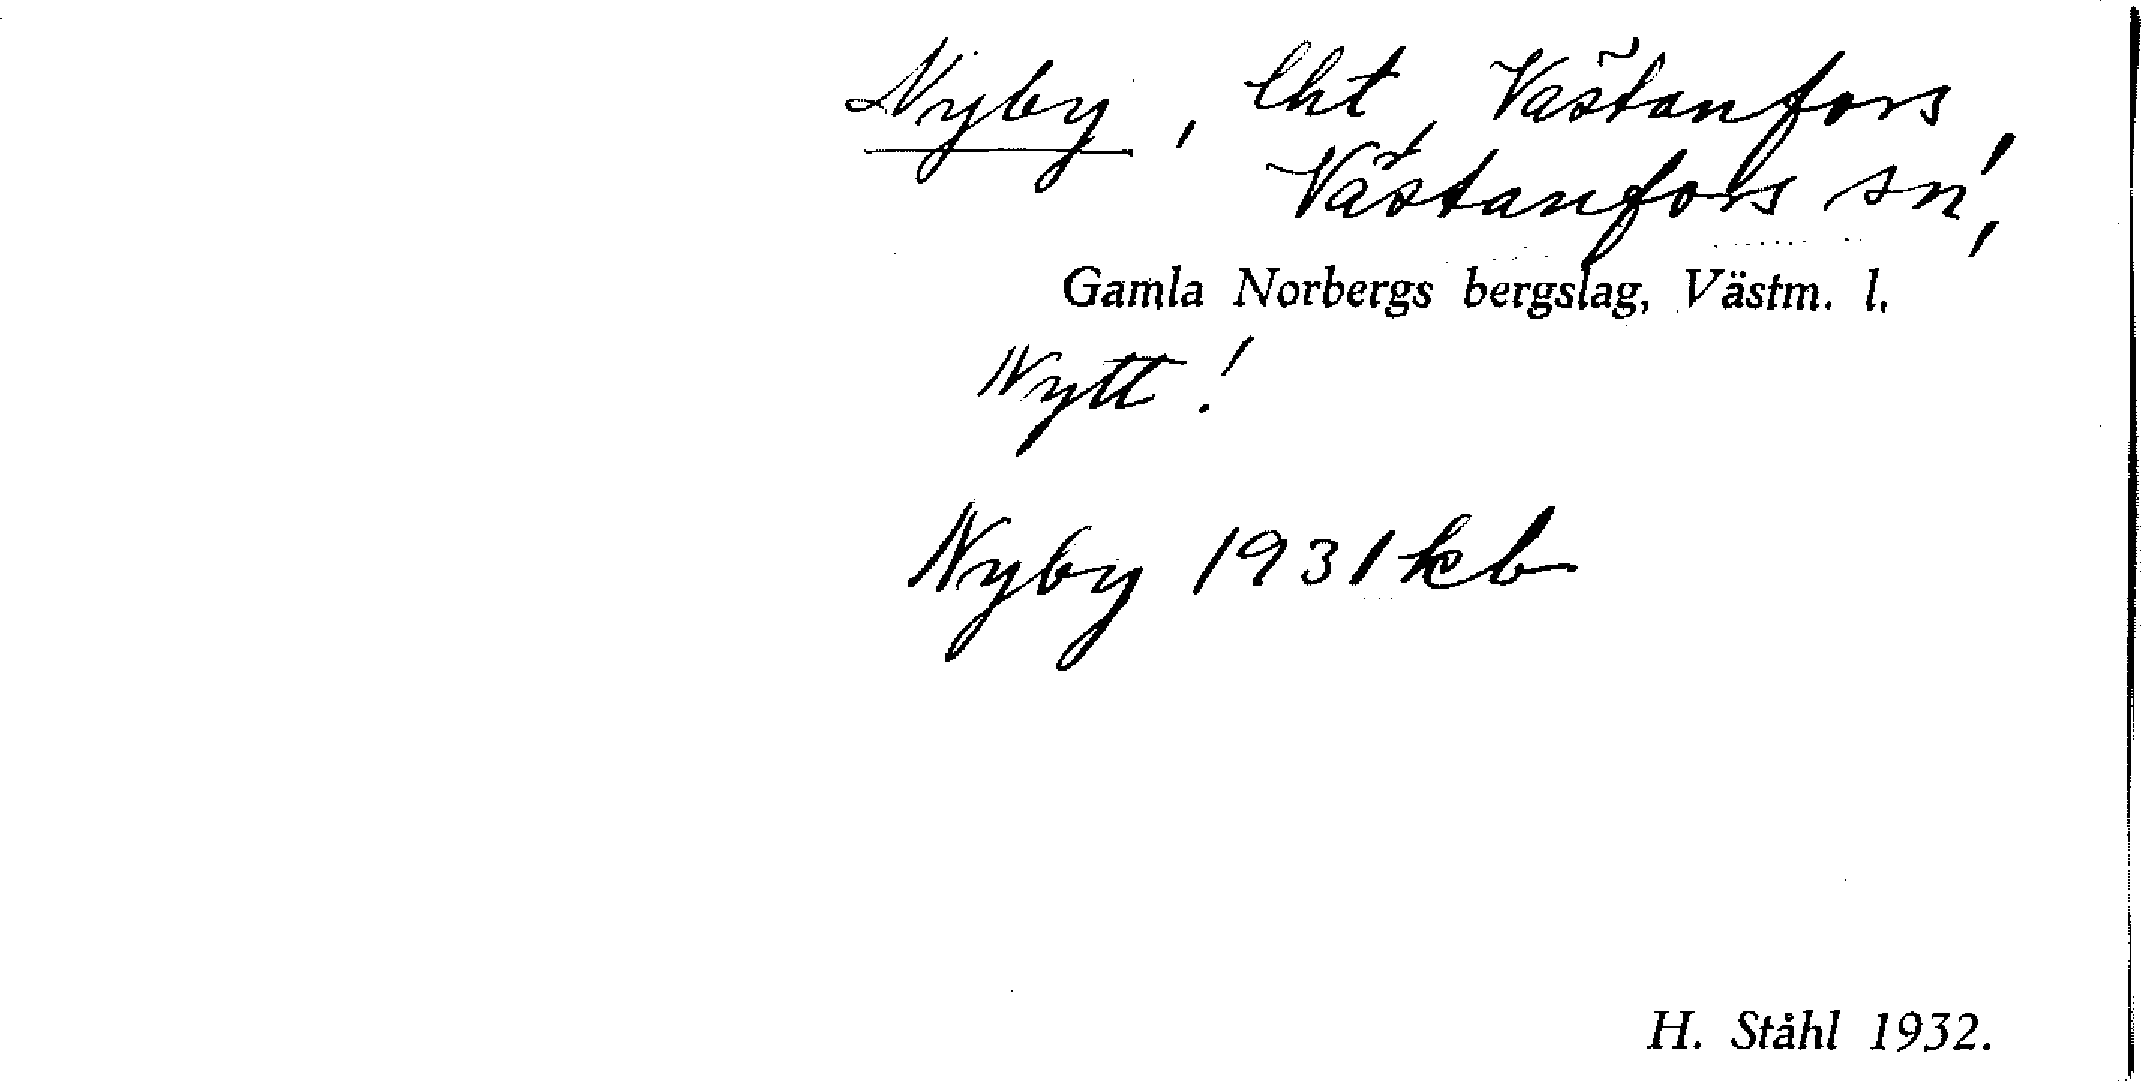 Nyby, lht, Västanfors,
Västanfors sn,
Gamla Norbergs bergslag, Västm. l.
Nytt!
Nyby 1931 kb
H. Ståhl 1932.